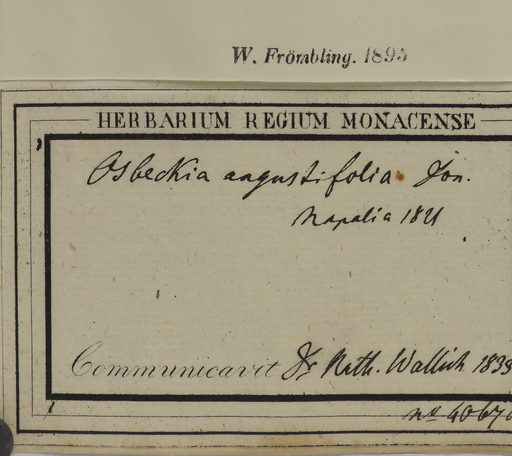 W. Frömbling. 1895
HERBARIUM REGIUM MONACENSE
Osbeckia angustifolia Don.
Napalia 1821
Communicavit Dr Nath. Wallich 183
no